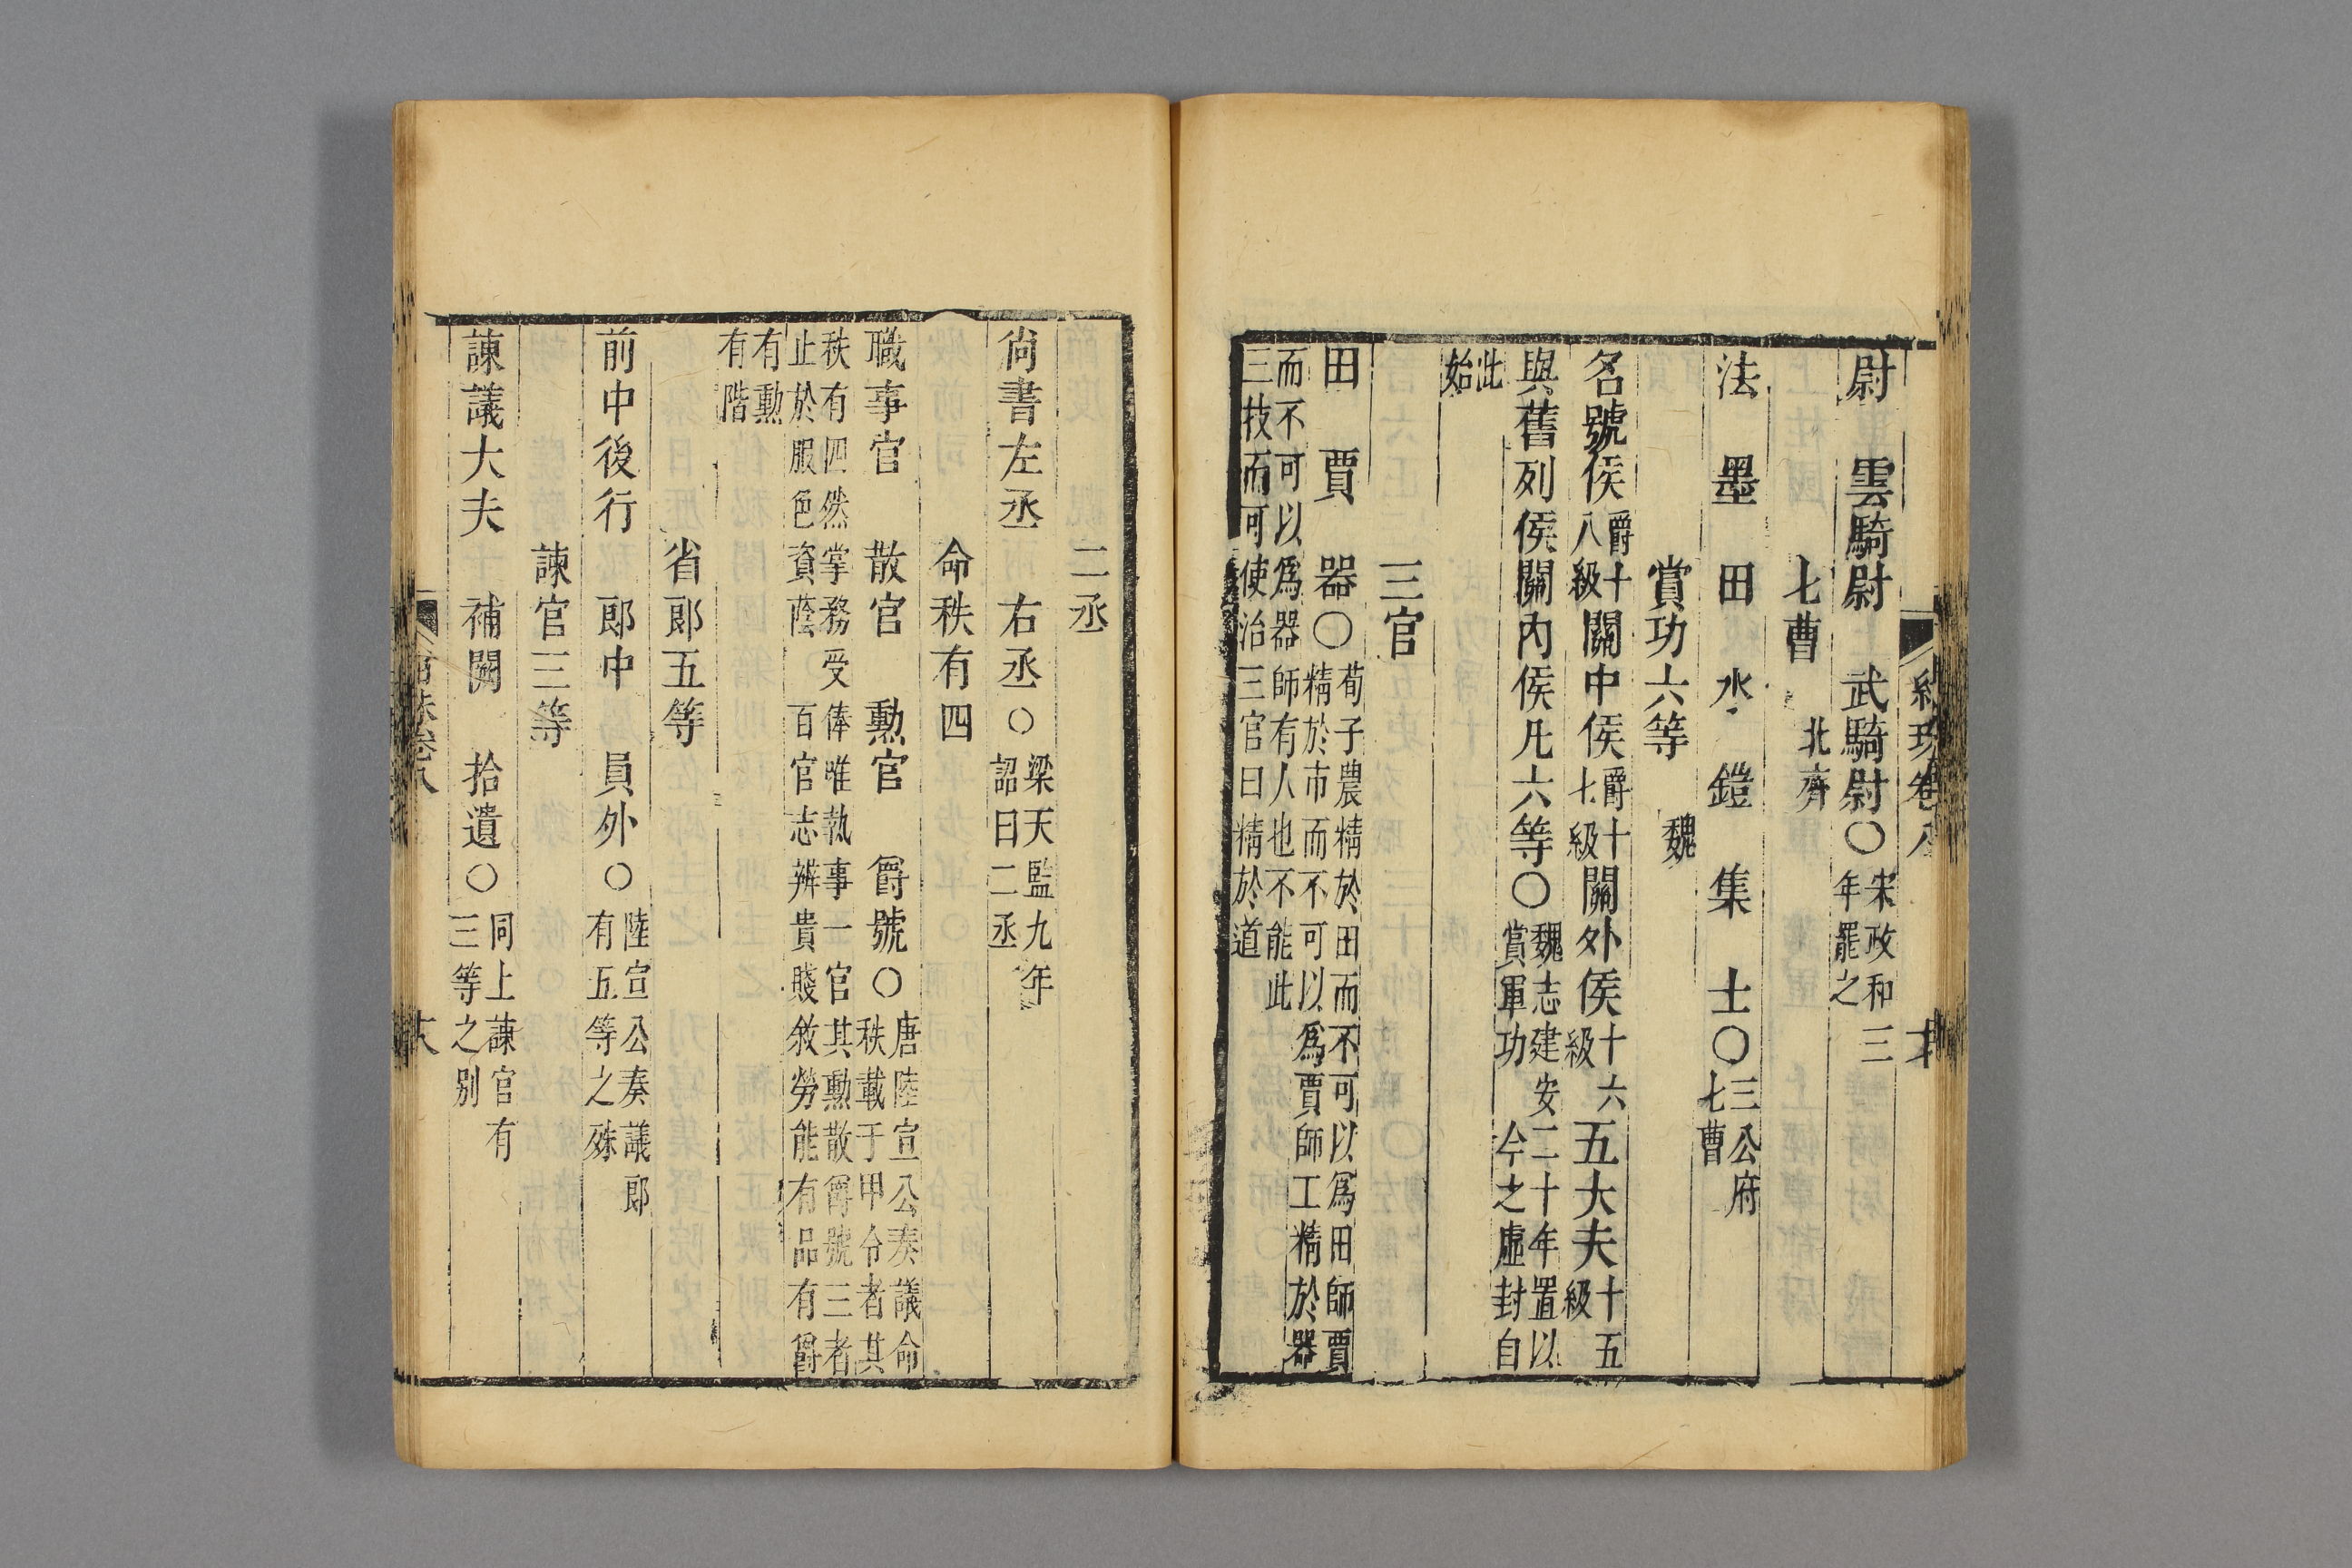 尉　雲騎尉　武騎尉〇宋政和三年罷之
七曹　北齊
法　墨　田　水　鎧　集　士〇三公府七曹
賞功六等　魏
名號侯爵十八級關中侯爵十七級關外侯十六級五大夫十五級
與舊列侯關內侯凡六等〇魏志建安二十年置以賞軍功今之虛封自
此始
三官
田　賈　器〇荀子農精於田而不可以爲田師賈精於市而不可以爲賈師工精於器
而不可以爲器師有人也不能此三技而可使治三官曰精於道
二丞
尚書左丞　右丞〇梁天監九年詔曰二丞
命秩有四
職事官　散官　勳官　爵號〇唐陸宣公奏議命秩載于甲令者其
秩有四然掌務受俸唯執事一官其勳散爵號三者止於服色資蔭百官志辨貴賤敘勞能有品有爵
有勳有階
省郎五等
前中後行　郎中　員外〇陸宣公奏議郎有五等之殊
諫官三等
諫議大夫　補闕　拾遺〇同上諫官有三等之別